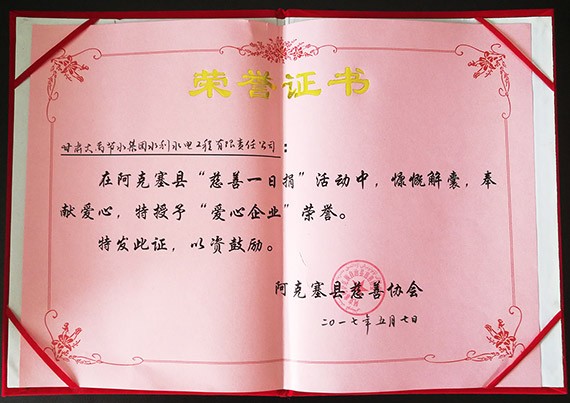 荣誉证书
甘肃大禹节水集团水利水电工程有限责任公司：
在阿克塞县“慈善一日捐”活动中，慷慨解囊，奉
献爱心，特授予“爱心企业”荣誉。
特发此证，以资鼓励。
阿克塞县慈善协会
二〇一七年五月七日